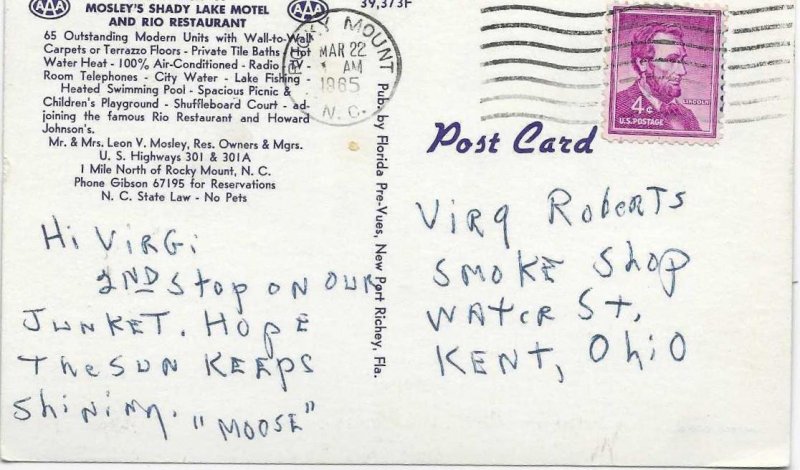 AAA
AAA
MOSLEY'S SHADY LAKE MOTEL
AND RIO RESTAURANT
39,373F
65 Outstanding Modern Units with Wall-to-Wall
Carpets or Terrazzo Floors - Private Tile Baths - Hot
Water Heat - 100% Air-Conditioned - Radio - TV -
Room Telephones - City Water - Lake Fishing -
Heated Swimming Pool - Spacious Picnic &
Children's Playground - Shuffleboard Court - ad-
joining the famous Rio Restaurant and Howard
Johnson's.
Mr. & Mrs. Leon V. Mosley, Res. Owners & Mgrs.
U. S. Highways 301 & 301A
1 Mile North of Rocky Mount, N. C.
Phone Gibson 67195 for Reservations
N. C. State Law - No Pets
ROCKY MOUNT
MAR 22
AM
1965
N. C.
LINCOLN
4¢
U.S. POSTAGE
Post Card
Pub. by Florida Pre-Vues, New Port Richey, Fla.
Hi VIRGi
2ND Stop ON OUR
JUNKET. HOPE
The SUN KEEPS
Shining.
"MOOSE"
VIRG ROBERTS
SMOKE Shop
WATER St,
KENT, Ohio